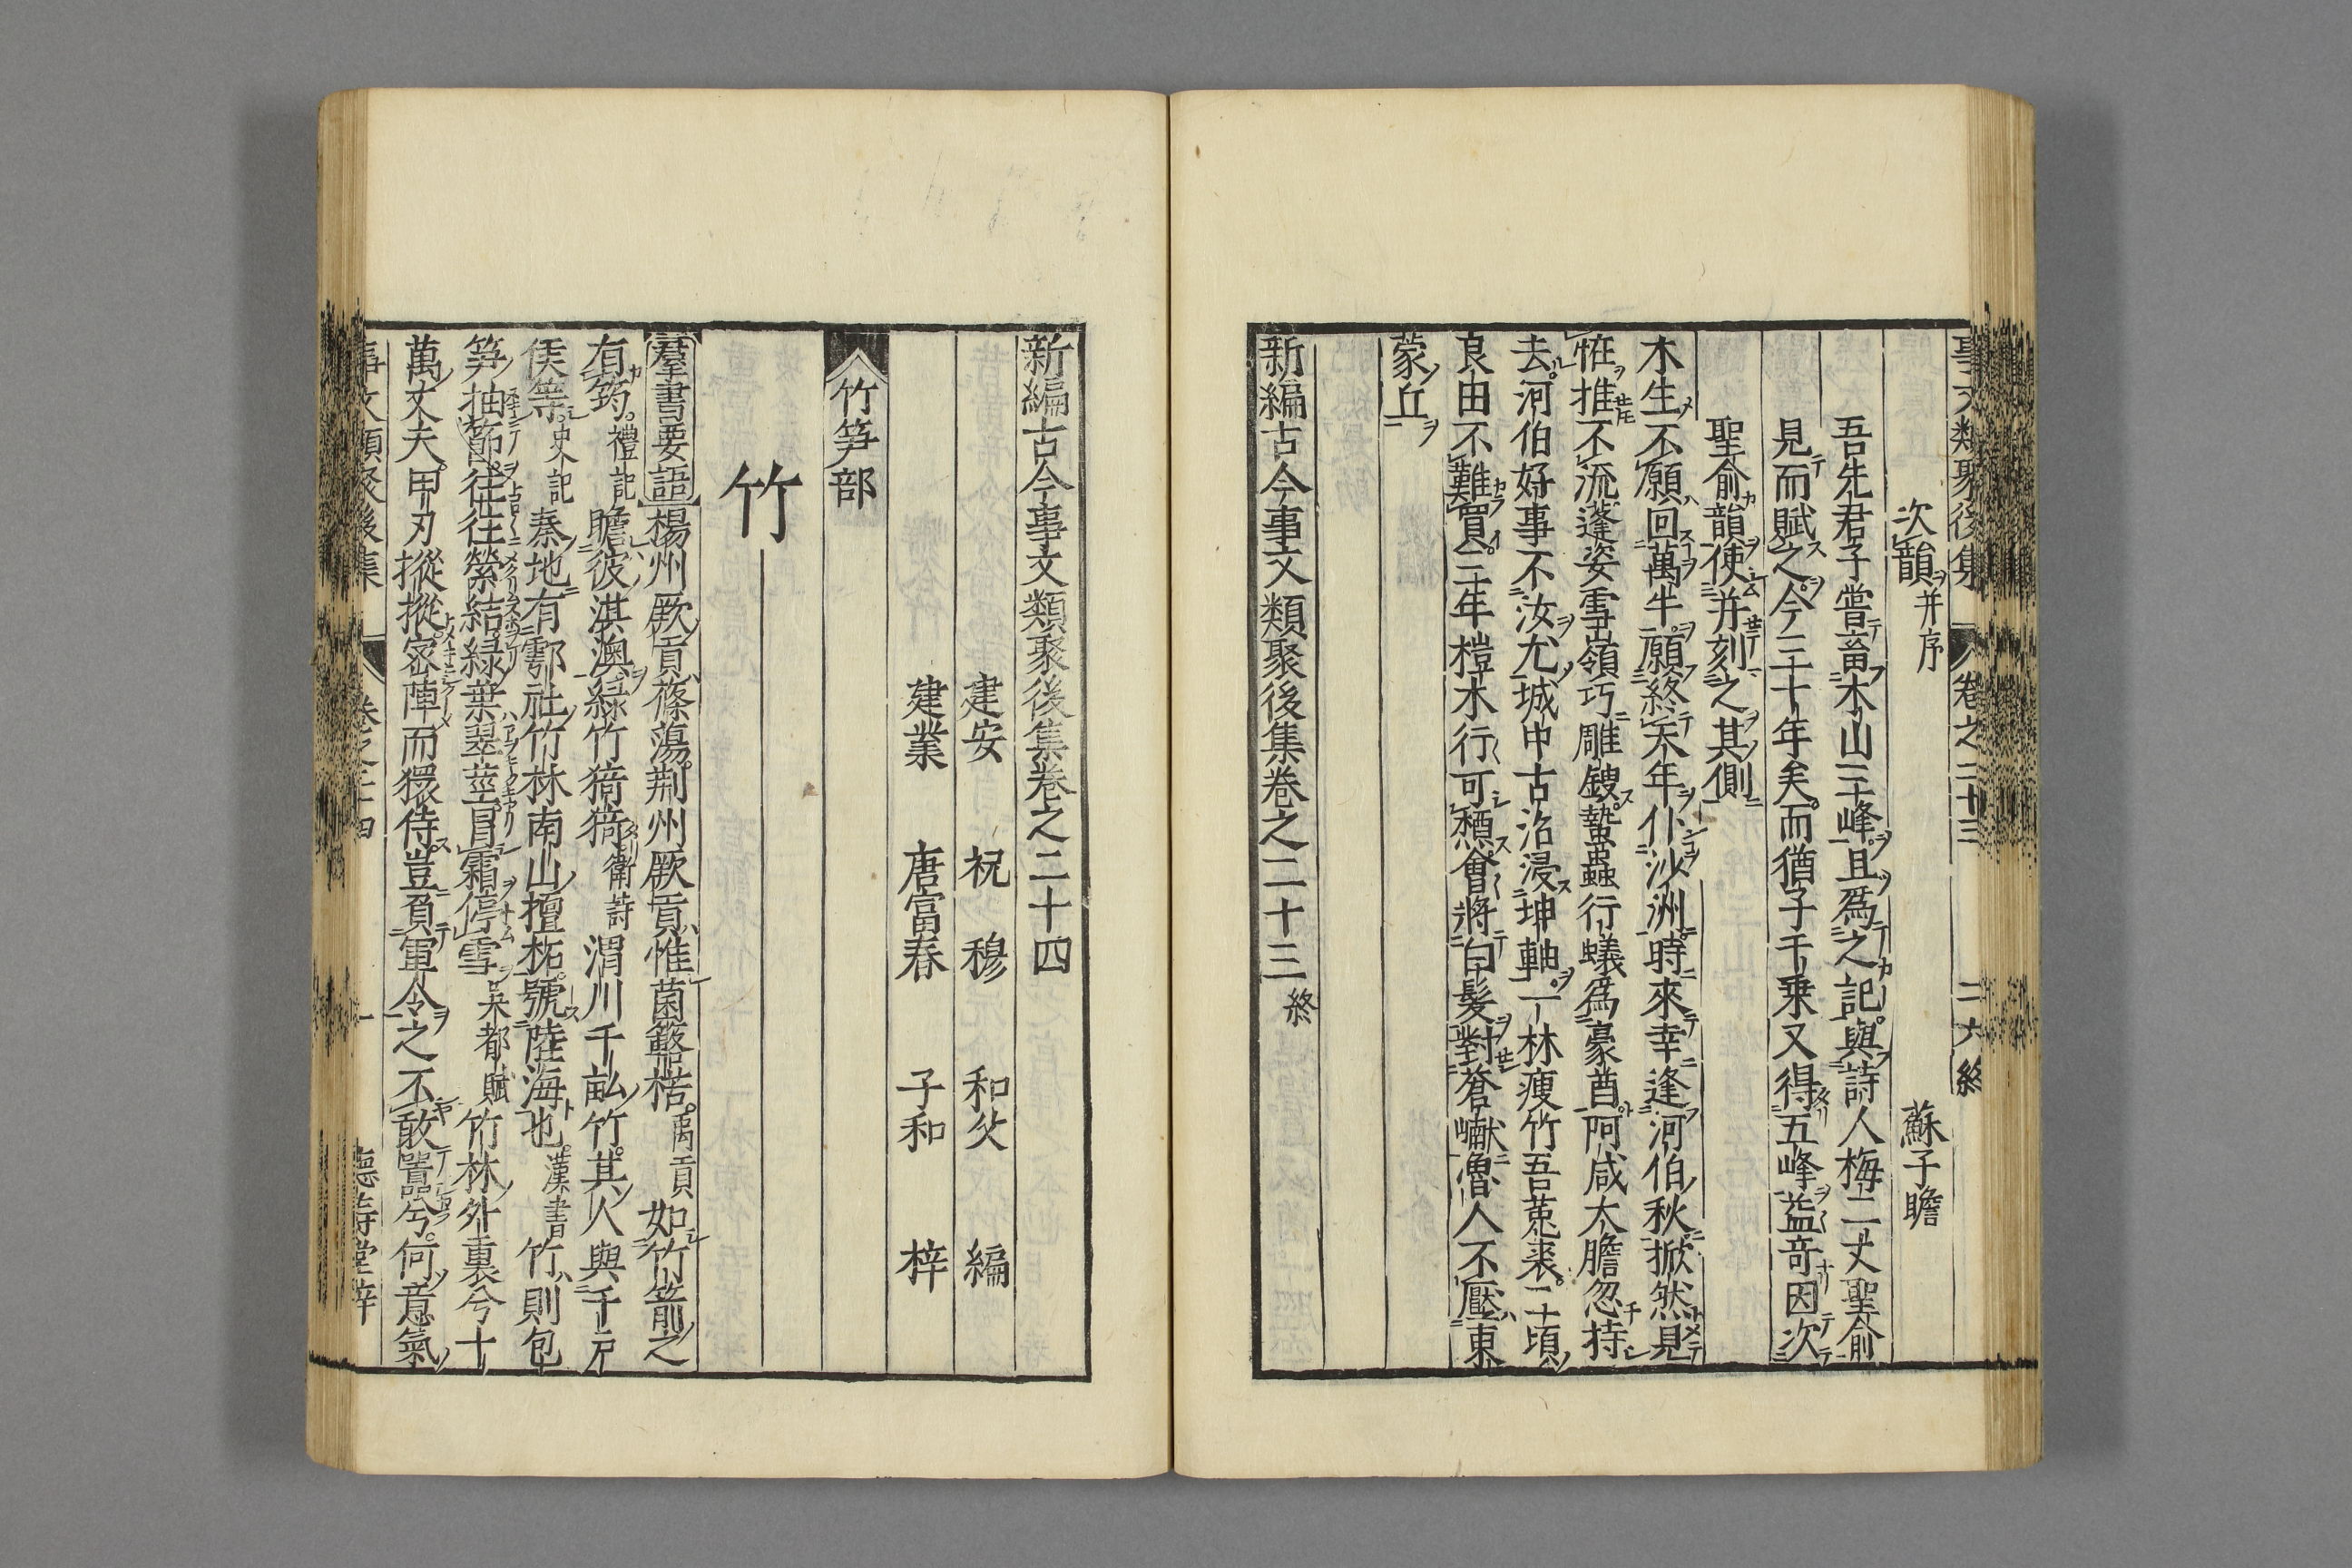 事文類聚後集 卷之二十三 二六終
次韻并序 蘇子瞻
吾先君子嘗畜木山三峰且爲之記與詩人梅二丈聖俞
見而賦之今三十年矣而猶子千乗又得五峰益竒因次
聖俞韻使并刻之其側
木生不願回萬牛願終天年仆沙洲時來幸逢河伯秋掀然見
恠推不流蓬姿雪嶺巧雕鎪蟄蟲行蟻爲豪酋阿咸大膽忽持
去河伯好事不汝尤城中古沼浸坤軸一林瘦竹吾菟裘二頃
良由不難買三年榿木行可槱會將白髮對蒼巘魯人不壓東
蒙丘
新編古今事文類聚後集卷之二十三終
新編古今事文類聚後集卷之二十四
建安 祝 穆 和父 編
建業 唐富春 子和 梓
竹笋部
竹
羣書要語楊州厥貢篠蕩荆州厥貢惟菌簵楛禹貢如竹箭之
有筠禮記瞻彼淇澳緑竹猗猗衛詩渭川千畝竹其人與千戸
侯等史記秦地有鄠社竹林南山擅柘號陸海也漢書竹則包
笋抽節往往縈結緑葉翠莖冒霜停雪吴都賦竹林外裏兮十
萬丈夫甲刃摐摐密陣而環侍豈負軍令之不敢嚚兮何意氣
事文類聚後集 卷之二十四 一 德壽堂梓